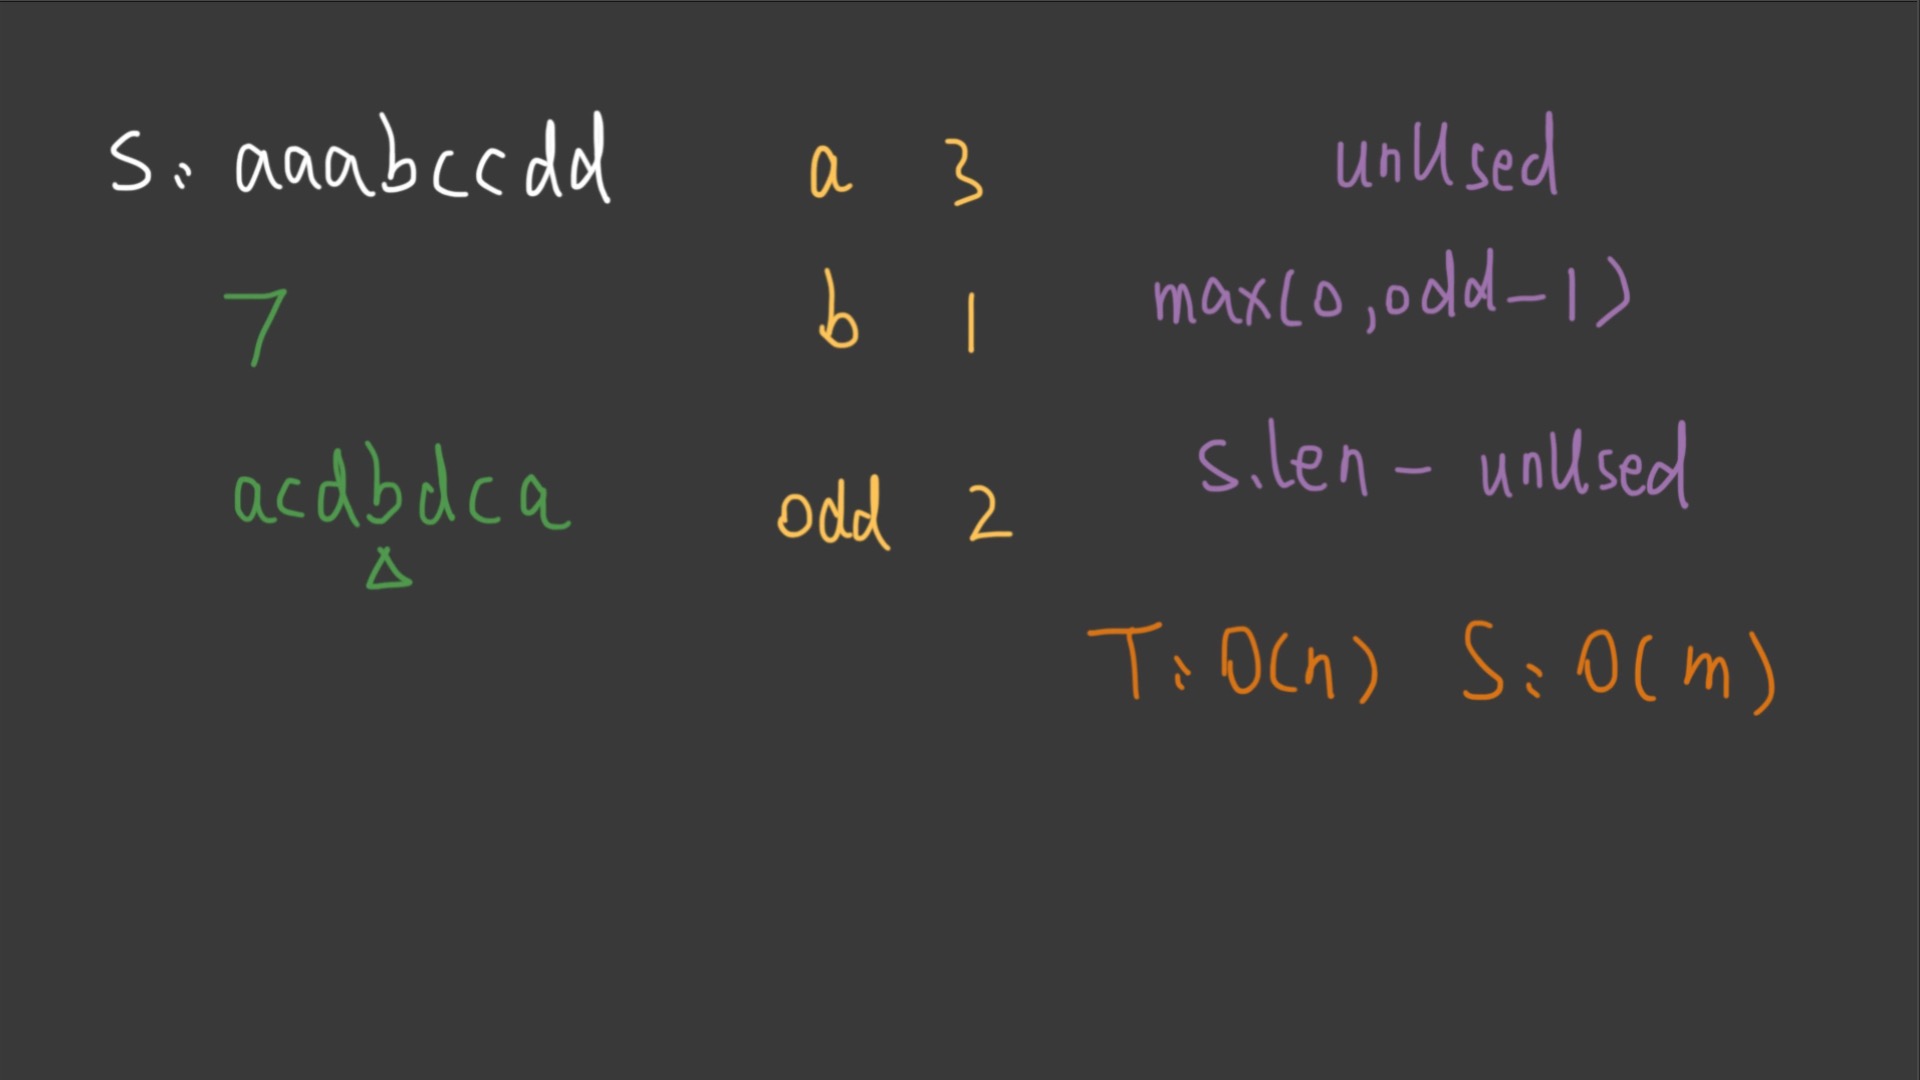 S: aaabccdd
7
acdbdca
a 3
b 1
odd 2
unUsed
max(0,odd-1)
s.len - unUsed
T: O(n) S: O(m)